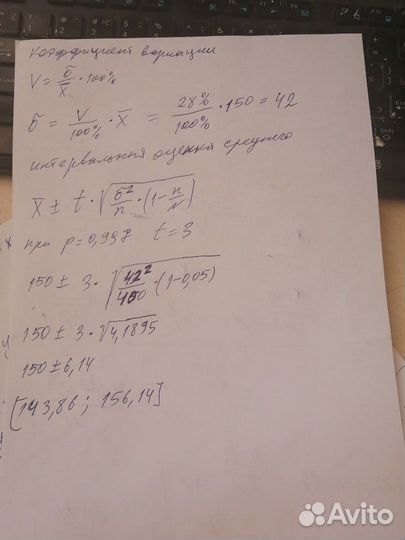 Коэффициент вариации
V = σ/x̄ · 100%
σ = V/100% · x̄ = 28%/100% · 150 = 42
интервальная оценка среднего
x̄ ± t · √(σ²/n · (1 - n/N))
при p = 0,997 t = 3
150 ± 3 · √(42²/400 · (1-0,05))
150 ± 3 · √4,1895
150 ± 6,14
[143,86 ; 156,14]
Avito